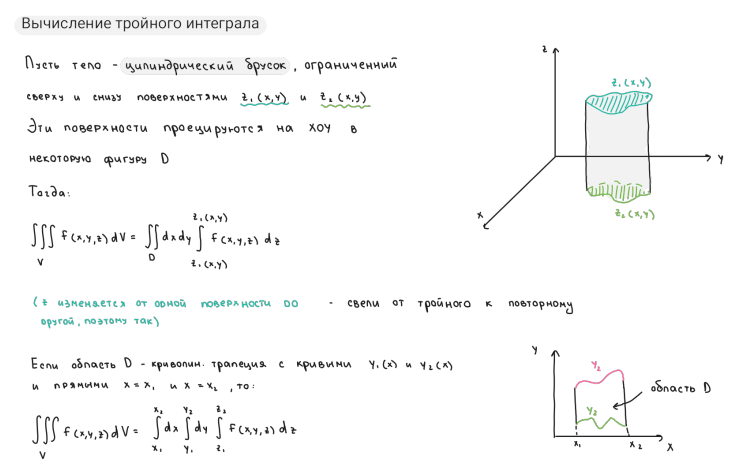 Вычисление тройного интеграла
Пусть тело - цилиндрический брусок, ограниченный
сверху и снизу поверхностями z₁(x,y) и z₂(x,y)
Эти поверхности проецируются на XOY в
некоторую фигуру D
Тогда:
∭_V f(x,y,z)dV = ∬_D dxdy ∫_{z₁(x,y)}^{z₁(x,y)} f(x,y,z) dz
(z изменяется от одной поверхности DO - свели от тройного к повторному
другой, поэтому так)
Если область D - криволин. трапеция с кривыми y₁(x) и y₂(x)
и прямыми x=x₁ и x=x₂, то:
∭_V f(x,y,z)dV = ∫_{x₁}^{x₂} dx ∫_{y₁}^{y₂} dy ∫_{z₁}^{z₂} f(x,y,z) dz
z
z₁(x,y)
y
x
z₂(x,y)
y
y₂
область D
y₂
x₁
x₂
x